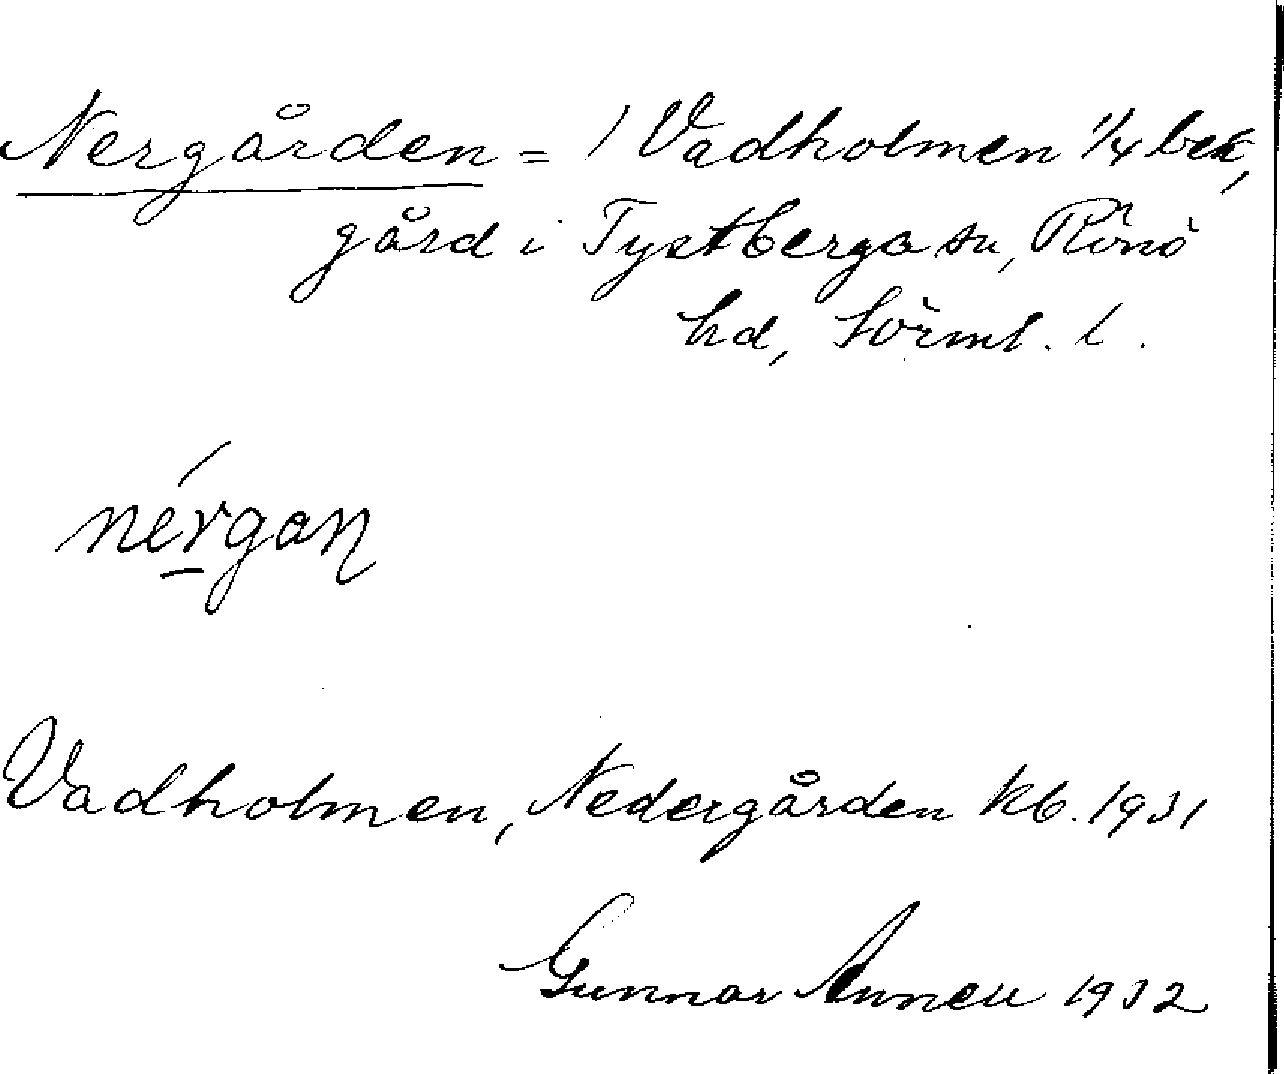 Nergården = 1 Vadholmen 1/4 bek,
gård i Tystberga sn, Rönö
hd, Sörml. l.
nérgaɳ
Vadholmen, Nedergården kb. 1931
Gunnar 1932